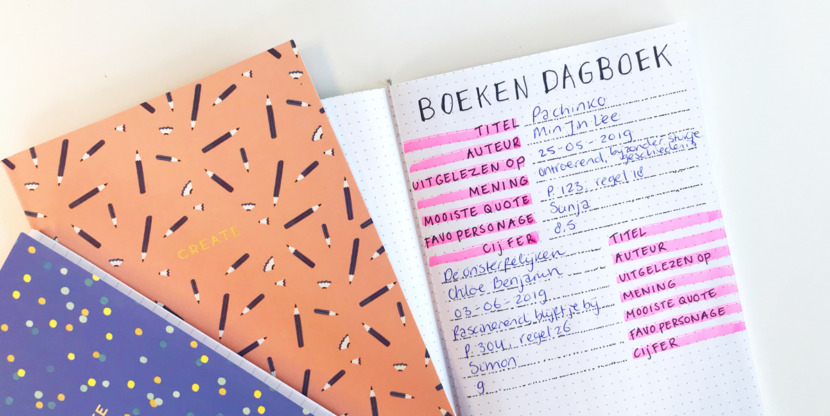 CREATE
BOEKEN DAGBOEK
TITEL Pachinko
AUTEUR Min Jin Lee
UITGELEZEN OP 25-05-2019
MENING ontroerend, bijzonder stukje geschiedenis
MOOISTE QUOTE P. 123, regel 18
FAVO PERSONAGE Sunja
CIJFER 8.5
De onsterfelijken TITEL
Chloe Benjamin AUTEUR
03-06-2019 UITGELEZEN OP
fascinerend, blijft je bij MENING
P. 304, regel 26 MOOISTE QUOTE
Simon FAVO PERSONAGE
9 CIJFER